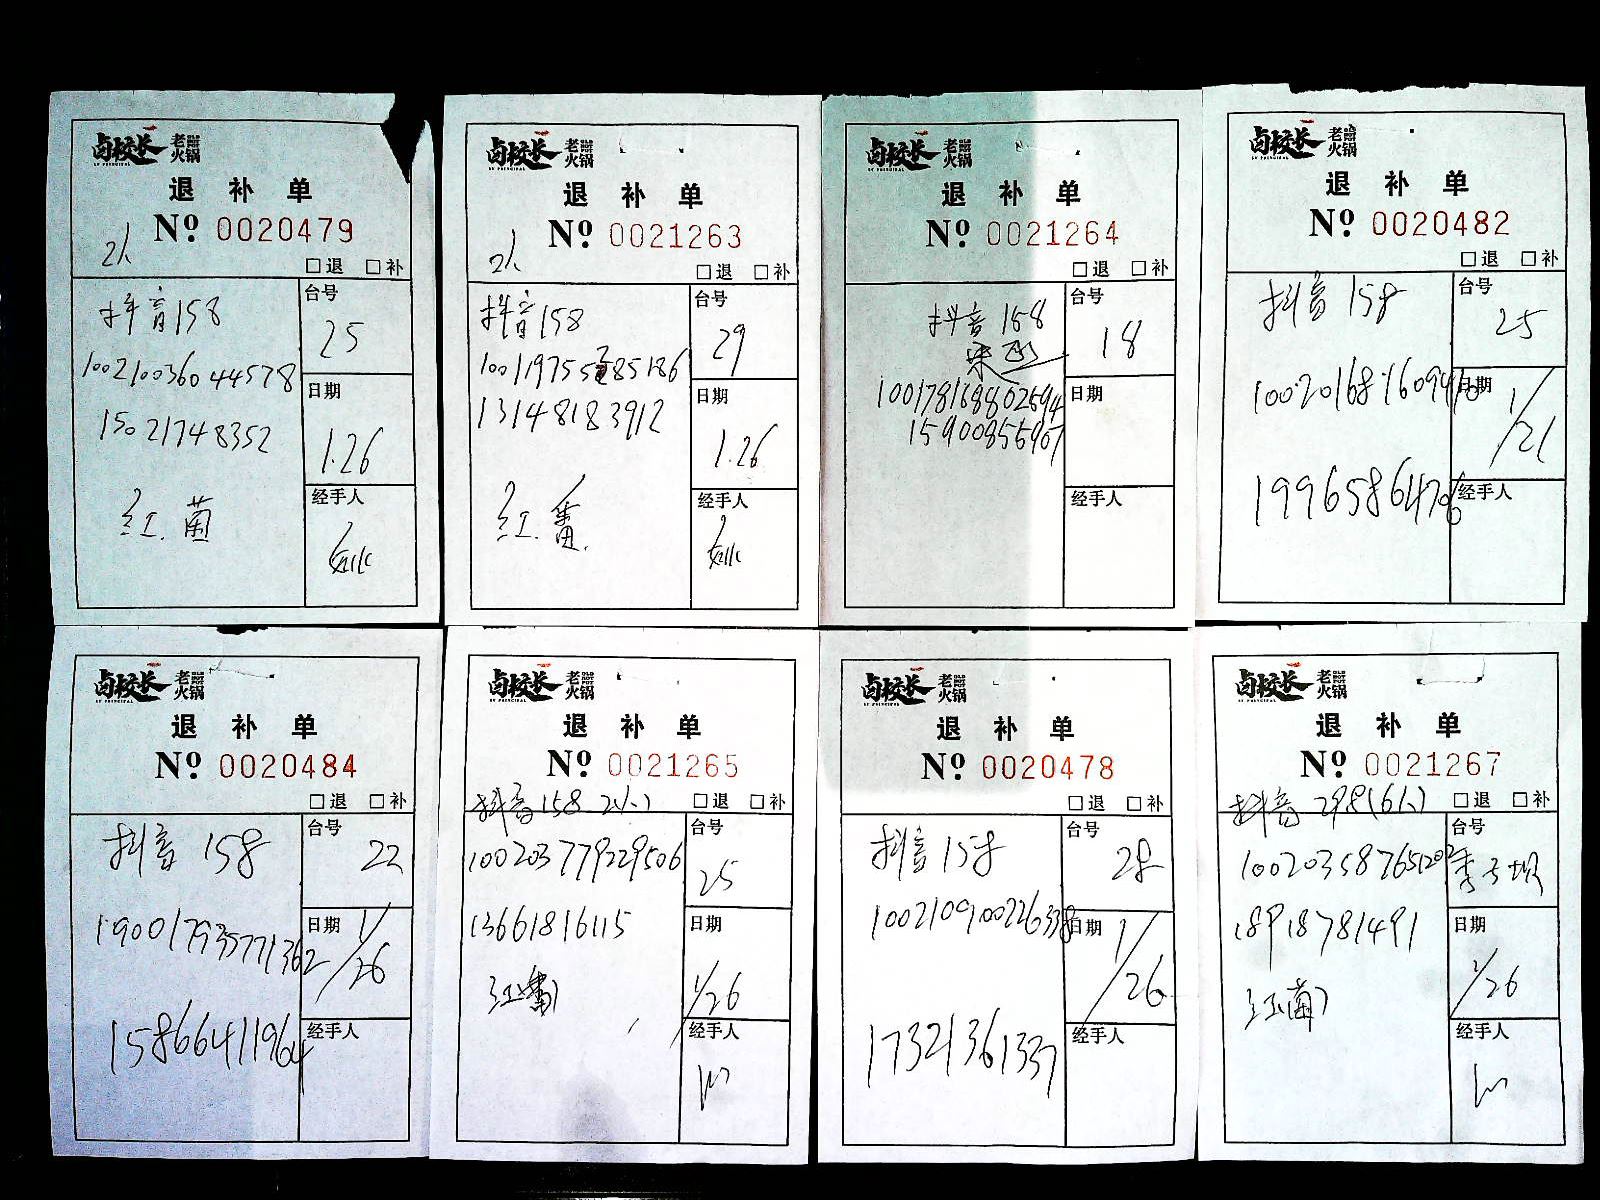 卤校长 老火锅
LU PRINCIPAL
退补单
Nº 0020479
2人
□退 □补
抖音158
100210036044578
15021748352
红.菌
台号
25
日期
1.26
经手人
卤校长 老火锅
LU PRINCIPAL
退补单
Nº 0021263
2人
□退 □补
抖音158
13148183912
红.番.
台号
29
日期
1.26
经手人
卤校长 老火锅
LU PRINCIPAL
退补单
Nº 0021264
□退 □补
抖音158
100178168802694
15900856907
台号
18
日期
经手人
卤校长 老火锅
LU PRINCIPAL
退补单
Nº 0020482
□退 □补
抖音 158
19965864706
台号
25
日期
1/21
经手人
卤校长 老火锅
LU PRINCIPAL
退补单
Nº 0020484
□退 □补
抖音 158
190017935771362
15866411964
台号
22
日期
1/26
经手人
卤校长 老火锅
LU PRINCIPAL
退补单
Nº 0021265
□退 □补
抖音158 2(人)
100203779229506
13661816115
红番
台号
25
日期
1/26
经手人
卤校长 老火锅
LU PRINCIPAL
退补单
Nº 0020478
□退 □补
抖音158
1002109100226338
17321361337
台号
28
日期
1/26
经手人
卤校长 老火锅
LU PRINCIPAL
退补单
Nº 0021267
□退 □补
抖音298(6人)
100203587651202
18918781491
红菌
台号
李子坝
日期
1/26
经手人